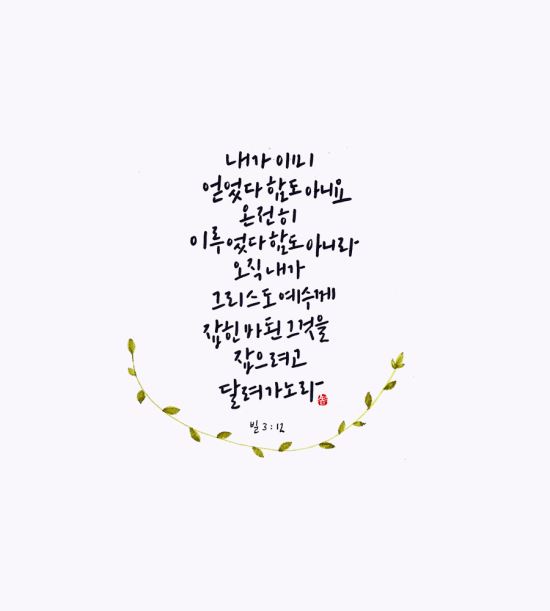 내가 이미
얻었다 함도 아니요
온전히
이루었다 함도 아니라
오직 내가
그리스도 예수께
잡힌 바 된 그것을
잡으려고
달려가노라
빌 3 : 12